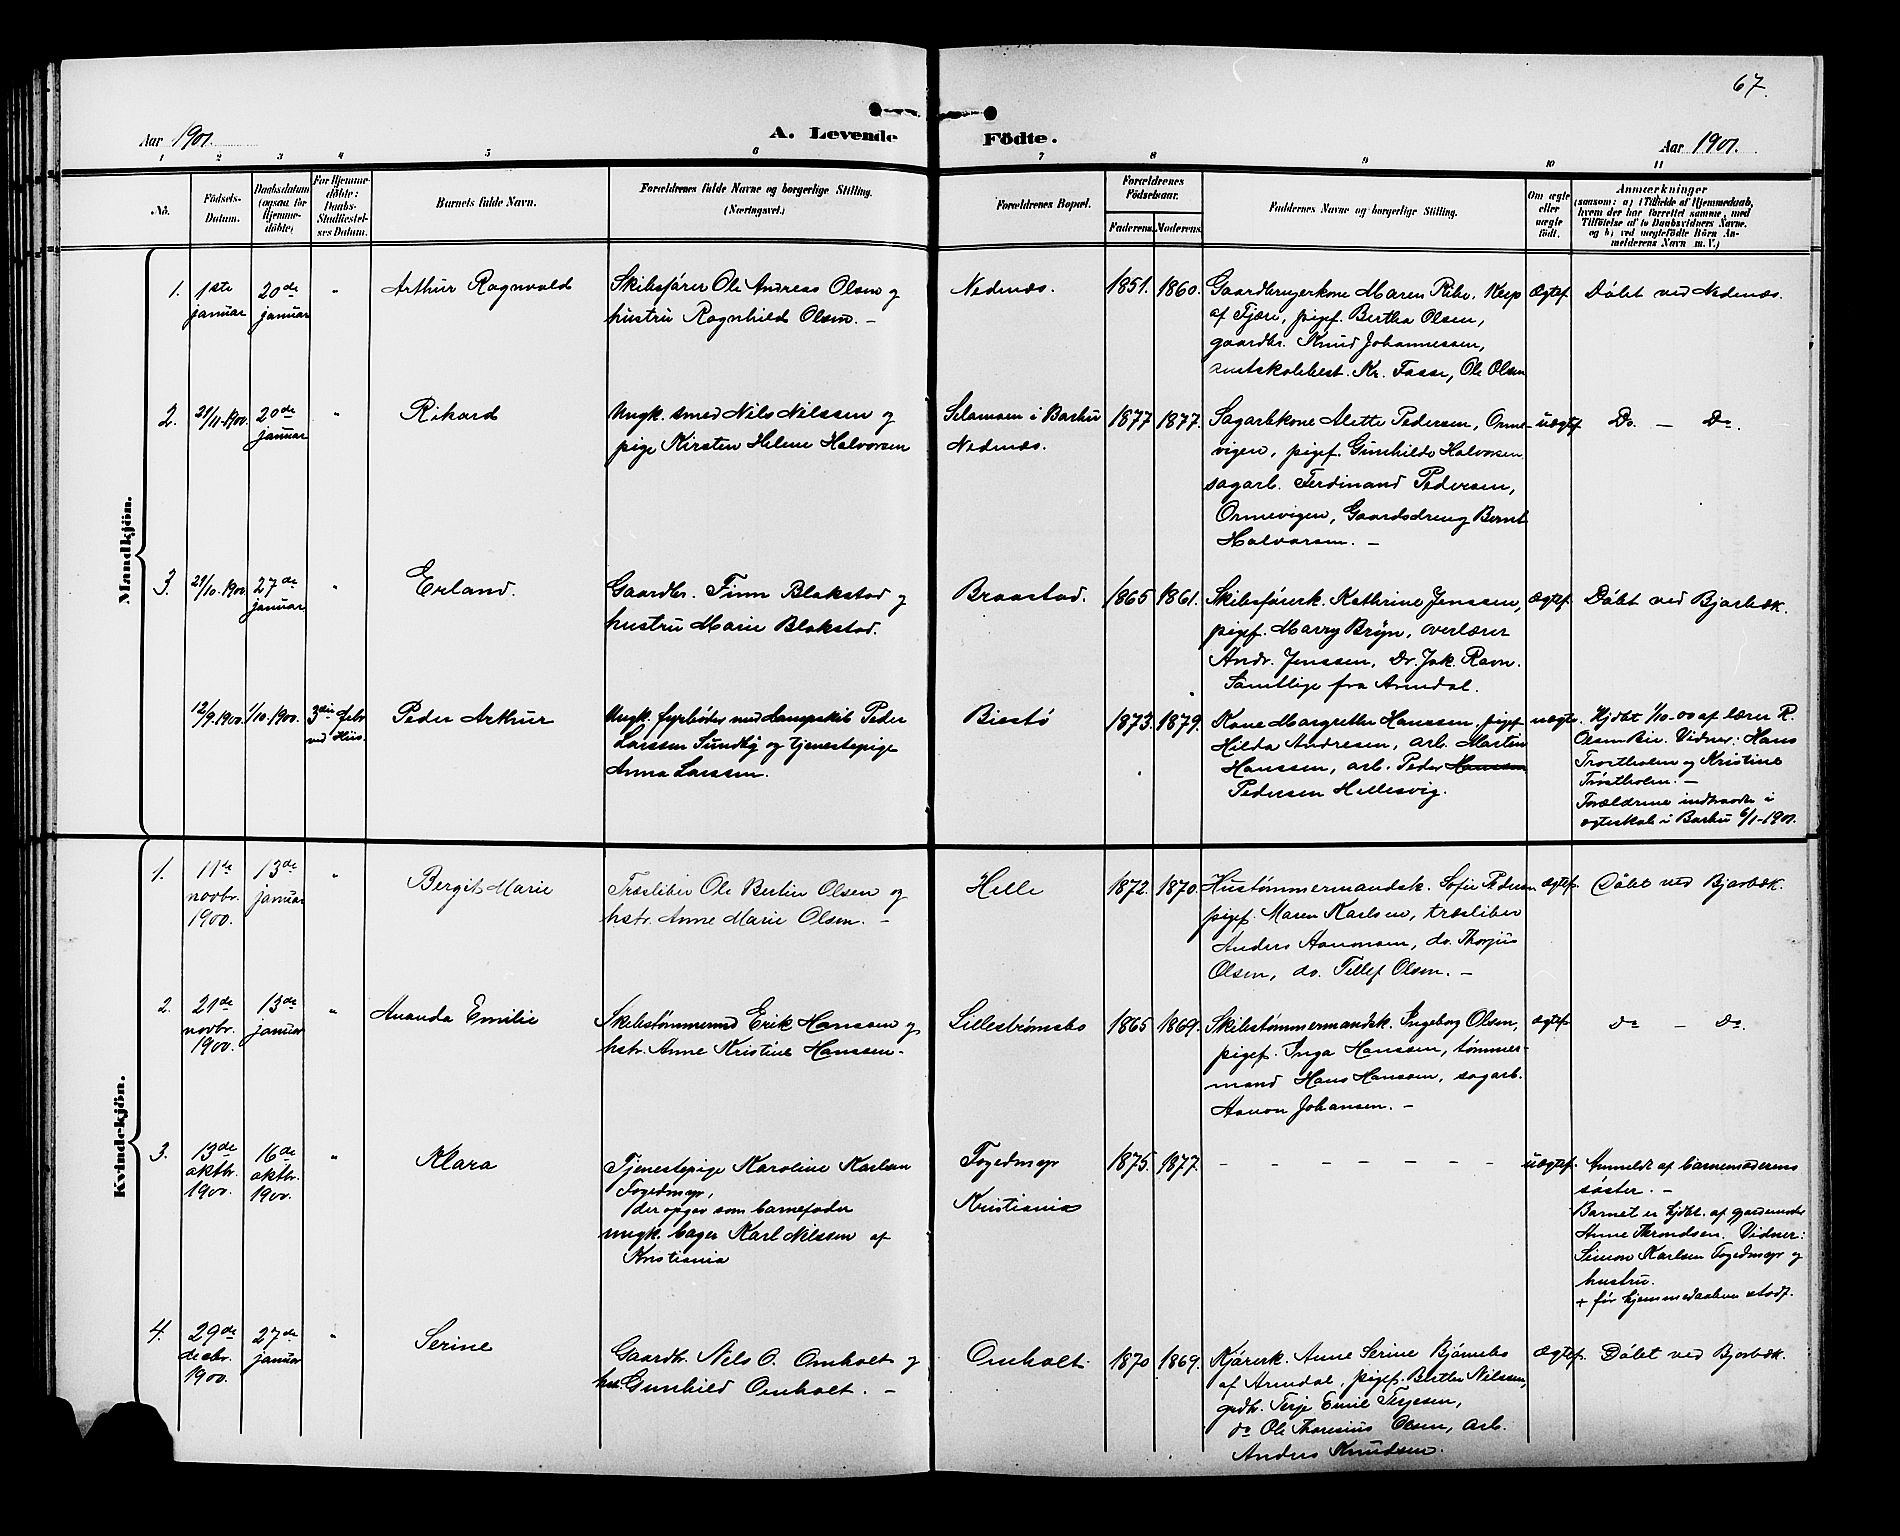 67.
Aar 1901.
A. Levende
Födte.
Aar 1901.
1 2 3 4 5 6 7 8 9 10 11
No.
Födsels-
Datum.
Daabsdatum
(ogsaa for
Hjemme-
döbte)
For Hjemme-
döbte:
Daabs-
Stadfæstel-
ses Datum.
Barnets fulde Navn.
Forældrenes fulde Navne og borgerlige Stilling.
(Næringsvei.)
Forældrenes Bopæl.
Forældrenes
Födselsaar.
Faderens. Moderens.
Faddernes Navne og borgerlige Stilling.
Om ægte
eller
uægte
födt.
Anmærkninger
(saasom: a) i Tilfælde af Hjemmedaab,
hvem der har forrettet samme, med
Tilföielse af to Daabsvidners Navne.
og b) ved uægtefödte Börn An-
melderens Navn m. V.)
Mandkjön.
1.
1ste
januar
20de
januar
"
Arthur Ragnvald
Skibsfører Ole Andreas Olsen og
hustru Ragnhild Olsen. -
Nedenæs.
1851. 1860.
Gaardbrugerkone Maren Ribe, Kaep
af Fjære, pigef. Bertha Olsen,
gaardbr. Knud Johannessen,
amtskolebest. Kr. Fasse, Ole Olsen
Ægtef.
Døbt ved Nedenæs.
2.
21/11-1900.
20de
januar
"
Rikard
Ungk. smed Nils Nilssen og
pige Kirsten Helene Halvorsen
i Barbu
Nedenæs.
1877 1877.
Sagarbkone Alette Pedersen, Orme-
vigen, pigef. Gunhilde Halvorsen
sagarb. Ferdinand Pedersen,
Ormevigen, Gaardsdreng Bernt
Halvorsen. -
uægtef.
Do. - Do.
3.
21/10-1900
27de
januar
"
Erland.
Gaardbr. Finn Blakstad og
hustru Marie Blakstad.
Braastad.
1865 1861.
Skibsførerk. Kathrine Jenssen,
pigef. Marry Bryn, overlærer
Andr. Jenssen, Dr. Jak. Ravn.
Samtlige fra Arendal.
Ægtef.
Døbt ved Bjorbæk.
12/9.1900.
1/10.1900.
3die febr
ved Hiis.
Peder Arthur
Ungk. fyrbøder med dampskib Peder
Larssen Sundby og tjenestepige
Anna Larssen.
Biestø
1873. 1879.
Kone Margrethe Hanssen, pigef
Hilda Andresen, arb. Morten
Hanssen, arb. Peder Hanssen
Pedersen Hellesvig.
uægte.
Hjdbt 1/10-00 af lærer R.
Olsen Bie. Vidner: Hans
Trostholm og Kristine
Trostholm. -
Forældrene indtraadte i
ægteskab i Barbu 6/1-1901.
Kvindekjön.
1.
11de
novbr.
1900.
13de
januar
"
Bergit Marie
Træsliber Ole Bertin Olsen og
hstr. Anne Marie Olsen. -
Helle
1872. 1870.
Hustømmermandsk. Sofie Pedersen
pigef. Maren Karlsen, træsliber
Anders Aanonsen, do. Thorjus
Olsen, do. Tellef Olsen. -
Ægtef.
Døbt ved Bjorbæk.
2.
21de
novbr.
1900.
13de
januar
"
Ananda Emilie
Skibstømmermd Erik Hanssen og
hstr. Anne Kristine Hanssen.
Lillestrømsbo
1865 1869.
Skibstømmermandsk. Ingeborg Olsen,
pigef. Inga Hanssen, tømmer-
mand Hans Hanssen, sagarb.
Aanon Johansen. -
Ægtef.
Do - Do.
3.
13de
oktbr.
1900.
16de
oktbr.
1900.
"
Klara
Tjenestepige Karoline Karlsen
Fogedmyr,
der opgav som barnefader
ungk. bager Karl Nilssen af
Kristiania
Fogedmyr
Kristiania
1875. 1877.
- - - - - - -
uægtef.
Anmeldt af barnemoderens
søster. -
Barnet er hjdbt. af gjordemoder
Anne Throndsen. Vidner:
Simon Karlsen Fogedmyr og
hustru.
+ før hjemmedaaben stadf.
4.
29de
decbr.
1900.
27de
januar
"
Serine
Gaardbr. Nils O. Omholt og
hst. Gunhild Omholt. -
Omholt.
1870 1869.
Kjørerk. Anne Serine Bjørnebo
af Arendal, pigef. Berthe Nilssen,
grdbr. Terje Emil Terjesen,
do Ole Thoresius Olsen, arb.
Anders Knudsen.
Ægtef.
Døbt ved Bjorbæk.